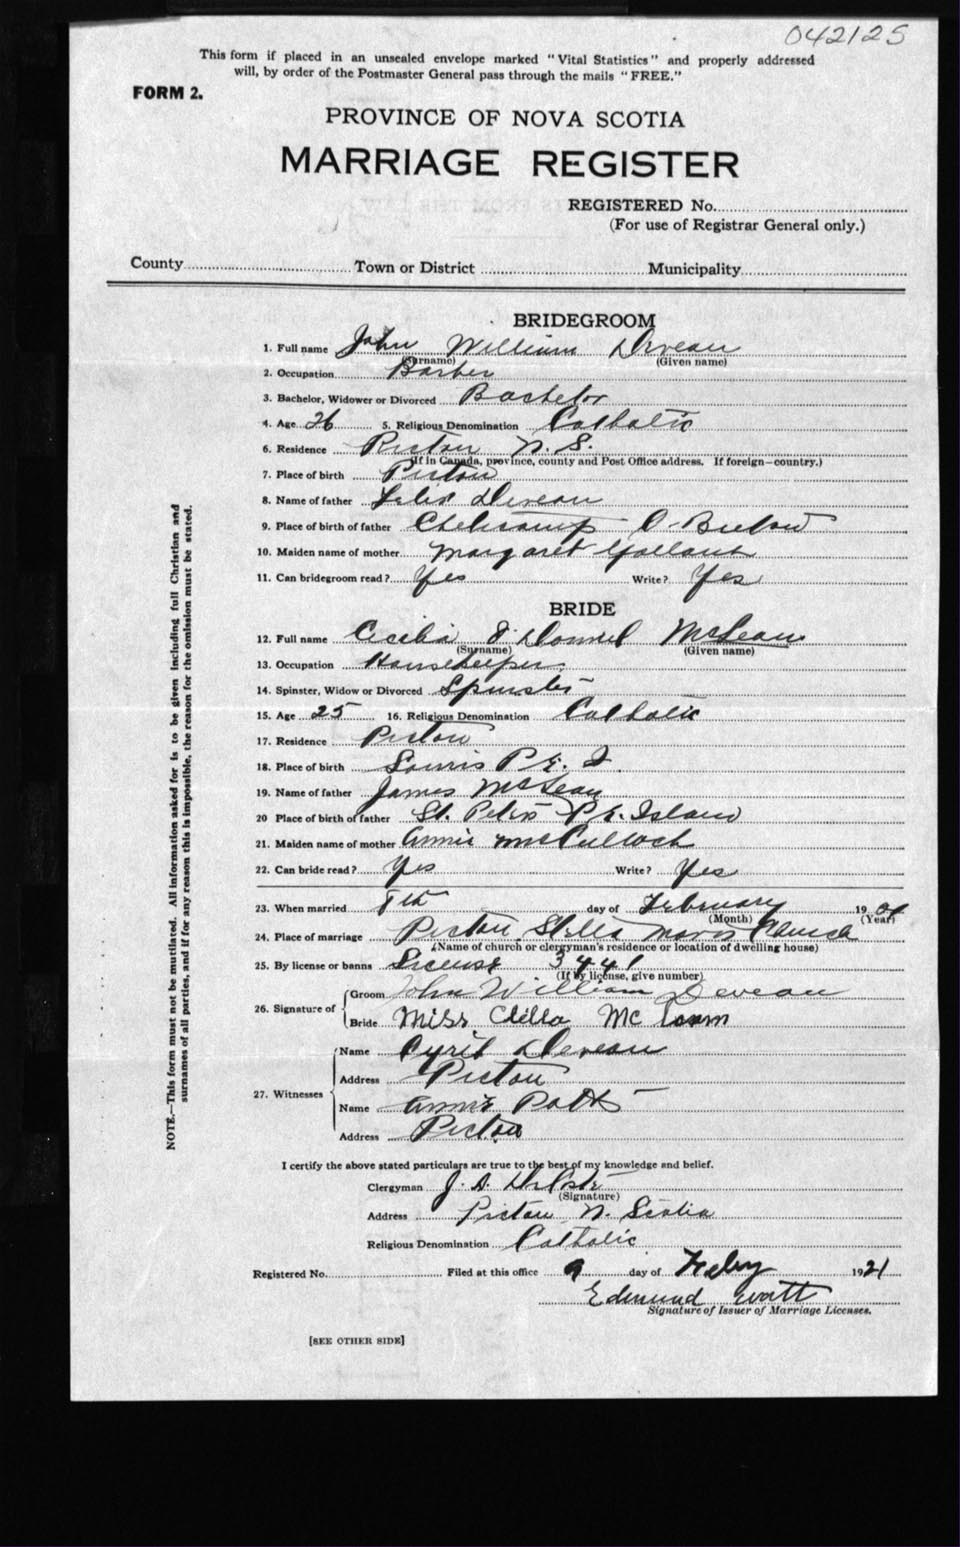 042125
This form if placed in an unsealed envelope marked "Vital Statistics" and properly addressed
will, by order of the Postmaster General pass through the mails "FREE."
FORM 2.
PROVINCE OF NOVA SCOTIA
MARRIAGE REGISTER
REGISTERED No.
(For use of Registrar General only.)
County Town or District Municipality
BRIDEGROOM
1. Full name John William Deveau
(Surname) (Given name)
2. Occupation Barber
3. Bachelor, Widower or Divorced Bachelor
4. Age 26 5. Religious Denomination Catholic
6. Residence Pictou N. S.
(If in Canada, province, county and Post Office address. If foreign—country.)
7. Place of birth Pictou
8. Name of father Felix Deveau
9. Place of birth of father C. Breton
10. Maiden name of mother Margaret Gallant
11. Can bridegroom read? Yes Write? Yes
BRIDE
12. Full name Cecilia McLean
(Surname) (Given name)
13. Occupation Housekeeper
14. Spinster, Widow or Divorced Spinster
15. Age 25 16. Religious Denomination Catholic
17. Residence Pictou
18. Place of birth Souris P. E. I.
19. Name of father James McLean
20 Place of birth of father St. Peters P. E. Island
21. Maiden name of mother Annie McCulloch
22. Can bride read? Yes Write? Yes
23. When married 8th day of February 19
(Month) (Year)
24. Place of marriage Pictou, Stella Maris Church
(Name of church or clergyman's residence or location of dwelling house)
25. By license or banns License 3441
(If by license, give number)
26. Signature of Groom John William Deveau
Bride Miss. Clella Mc
27. Witnesses Name Cyril Deveau
Address Pictou
Name Annie Potts
Address Pictou
I certify the above stated particulars are true to the best of my knowledge and belief.
Clergyman J. A.
(Signature)
Address Pictou N. Scotia
Religious Denomination Catholic
Registered No. Filed at this office 9 day of Feby 1921
Edmund Watt
Signature of Issuer of Marriage Licenses.
[SEE OTHER SIDE]
NOTE.—This form must not be mutilated. All information asked for is to be given including full Christian and
surnames of all parties, and if for any reason this is impossible, the reason for the omission must be stated.